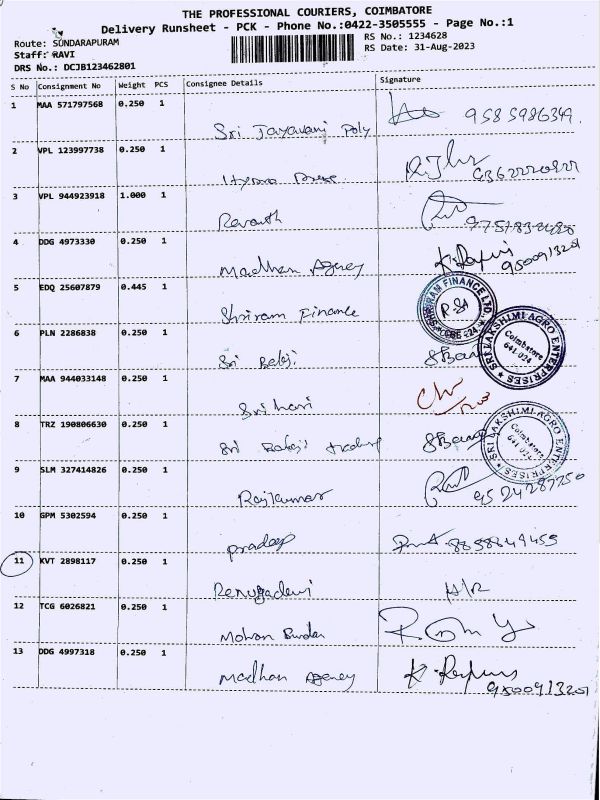 THE PROFESSIONAL COURIERS, COIMBATORE
Delivery Runsheet - PCK - Phone No.:0422-3505555 - Page No.:1
Route: SUNDARAPURAM
RS No.: 1234628
Staff: RAVI
RS Date: 31-Aug-2023
DRS No.: DCJB123462801
S No Consignment No Weight PCS Consignee Details Signature
1 MAA 571797568 0.250 1
Sri Jayavani Poly 9585986349.
2 VPL 123997738 0.250 1
3 VPL 944923918 1.000 1
Revanth
4 DDG 4973330 0.250 1
Madhan Agency 9500913201
5 EDQ 25607879 0.445 1
Shriram Finance
SHRIRAM FINANCE LTD.
6 PLN 2286838 0.250 1
Sri Balaji
SRI LAKSHIMI AGRO ENTERPRISES
Coimbatore
641 024
7 MAA 944033148 0.250 1
Sri hari
8 TRZ 190806630 0.250 1
Sri Balaji
SRI LAKSHIMI AGRO ENTERPRISES
Coimbatore
9 SLM 327414826 0.250 1
Rajkumar 9524287250
10 GPM 5302594 0.250 1
Pradeep
11 KVT 2898117 0.250 1
Renugadevi H/R
12 TCG 6026821 0.250 1
Mohan
13 DDG 4997318 0.250 1
Madhan Agency 9500913201